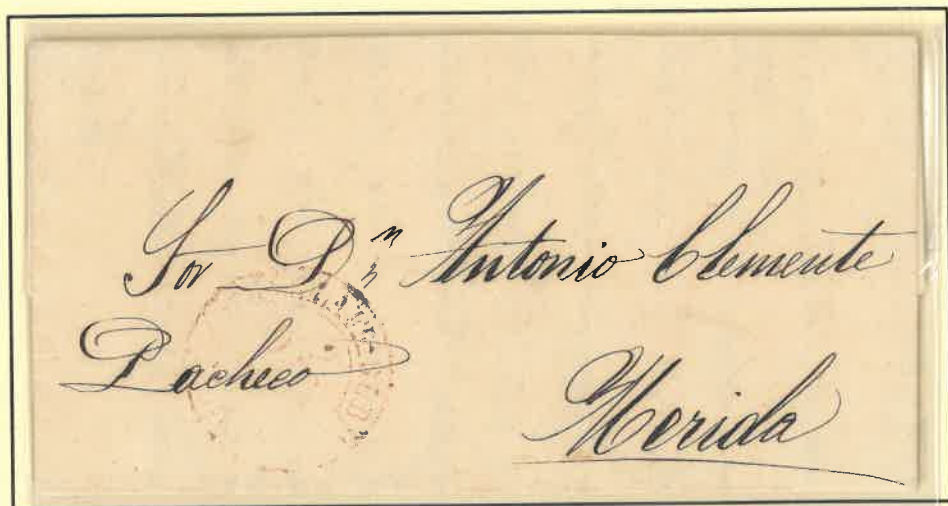 Sor Dn Antonio Clemente
Pacheco
Merida